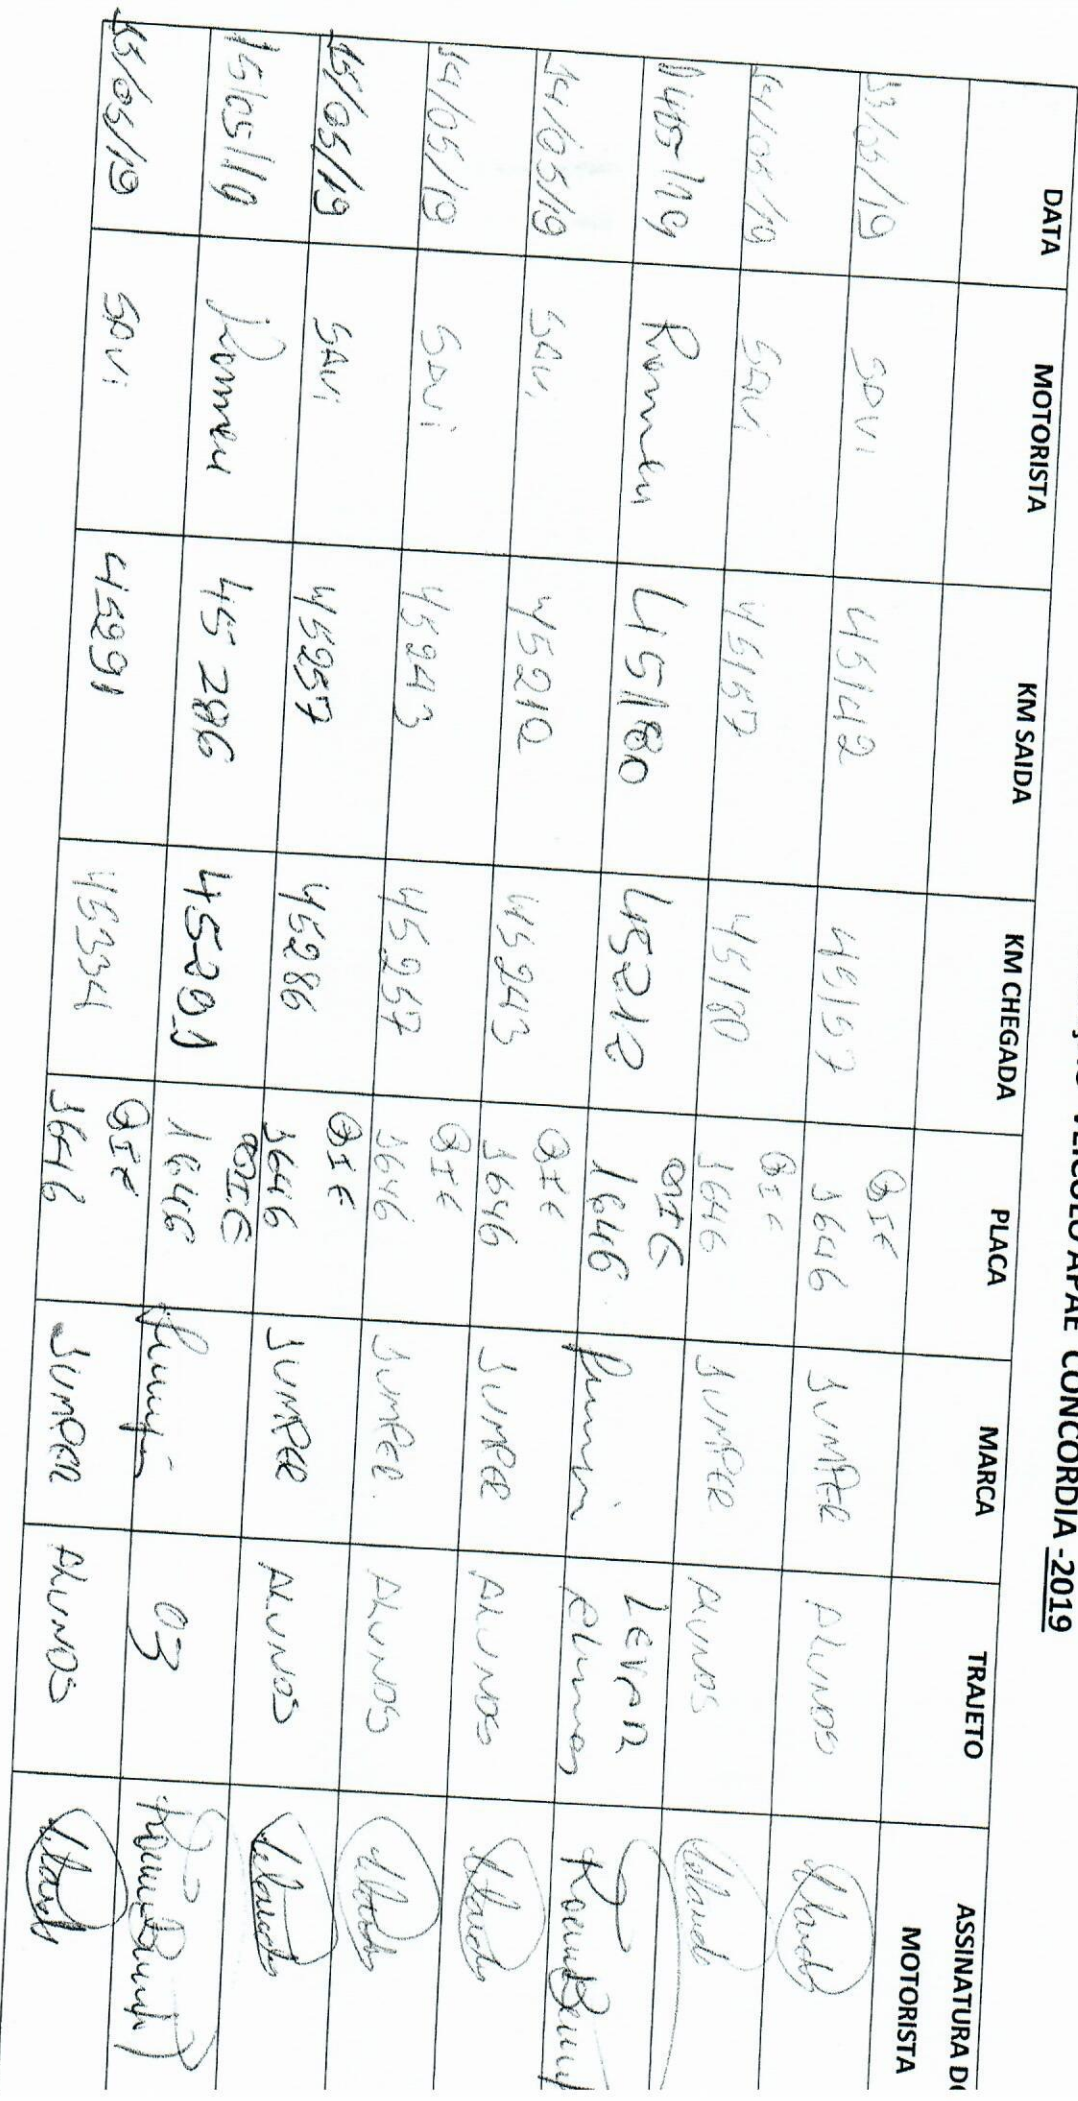 VEICULO APAE CONCORDIA -2019
DATA MOTORISTA KM SAIDA KM CHEGADA PLACA MARCA TRAJETO ASSINATURA DO MOTORISTA
13/05/19 SAVI 45142 45157 QIE 1646 JUMPER ALUNOS
14/05/19 SAVI 45157 45180 QIE 1646 JUMPER ALUNOS
14/05/19 Romeu 45180 45212 QIE 1646 LEVAR Alunos
14/05/19 SAVI 45212 45243 QIE 1646 JUMPER ALUNOS
14/05/19 SAVI 45243 45257 QIE 1646 JUMPER. ALUNOS
15/05/19 SAVI 45257 45286 QIE 1646 JUMPER ALUNOS
15/05/19 Romeu 45286 45291 QIE 1646 03
15/05/19 SAVI 45291 45334 QIE 1646 JUMPER ALUNOS